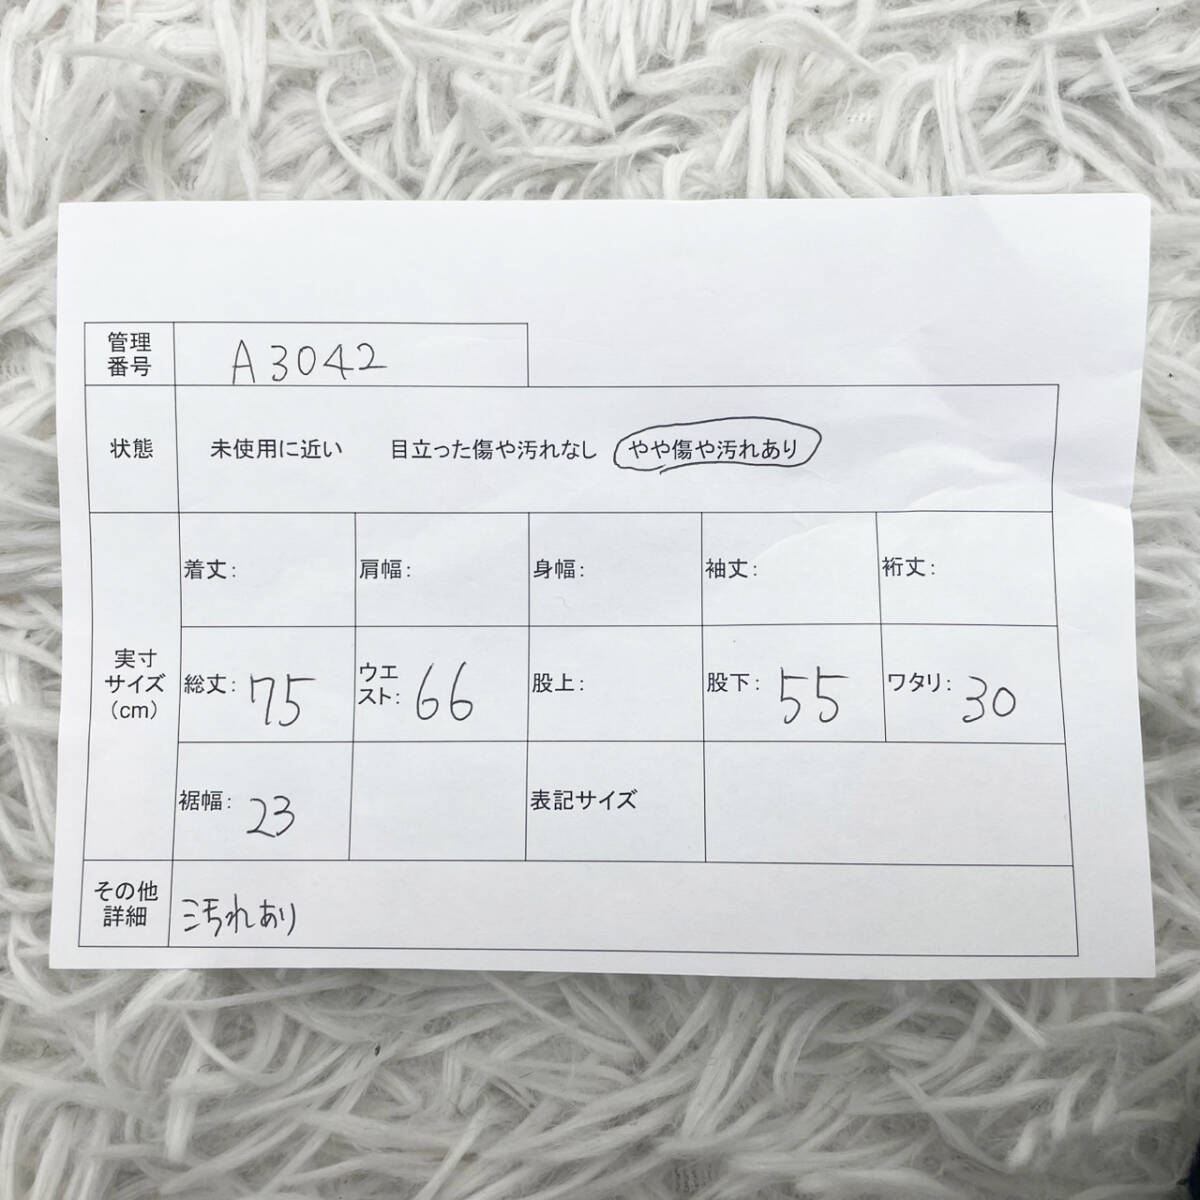 管理
番号
A3042
状態
未使用に近い 目立った傷や汚れなし やや傷や汚れあり
実寸
サイズ
（cm）
着丈： 肩幅： 身幅： 袖丈： 裄丈：
総丈：75
ウエ
スト：66
股上：
股下：55
ワタリ：30
裾幅：23
表記サイズ
その他
詳細
汚れあり